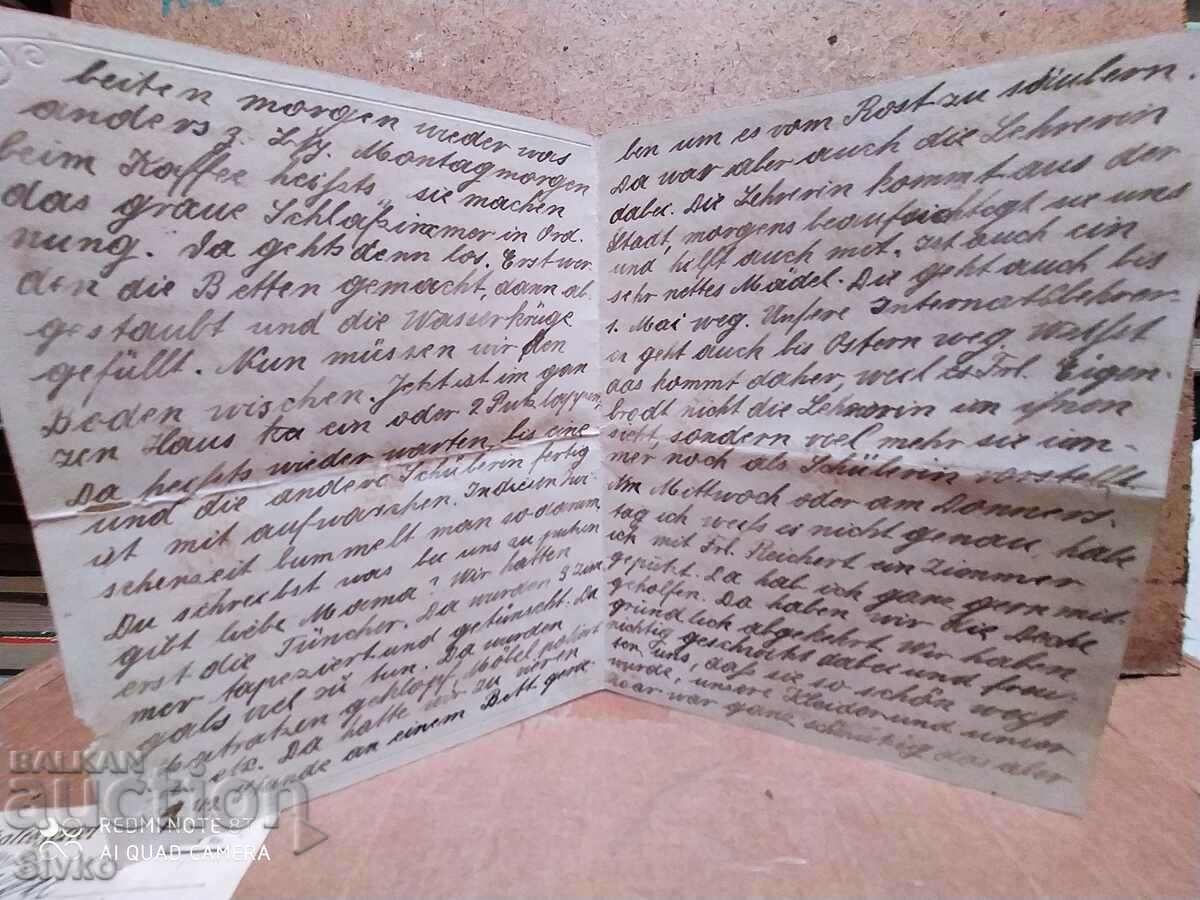 beiten morgen wieder was
anders z. Bsp. Montagmorgen
beim Kaffee heissts, sie machen
das graue Schlafzimmer in Ord.
nung. Da gehts denn los. Erst wer
den die Betten gemacht, dann ab.
gestaubt und die Wasserkrüge
gefüllt. Nun müssen wir den
Boden wischen. Jetzt ist im gan
zen Haus ein oder 2 Putzlappen,
Da heissts wieder warten, bis eine
und die andere Schülerin fertig
ist mit aufwaschen. In diesen zwi-
schenzeit bummelt man so daran
Du schreibst was bei uns zu putzen
gibt liebe Mama? Wir hatten
erst die Tüncher. Da wurden 3 Zim
mer tapeziert und getüncht. Da
gabs viel zu tun. Da wurden
Matratzen geklopft, Möbel poliert
etz. Da hatte wir zu
Stunde an einem Bett gerie
ben um es vom Rost zu säubern.
Da war aber auch die Lehrerin
dabei. Die Lehrerin kommt aus der
Stadt, morgens beaufsichtegt sie uns
und hilft auch mit. Ist auch ein
sehr nettes Mädel. Die geht auch bis
1. Mai weg. Unsere Internatslehrer-
in geht auch bis Ostern weg. Weisst
das kommt daher, weil Frl. Eigen.
brodt nicht die Lehrerin in ihnen
sieht, sondern viel mehr sie im-
mer noch als Schülerin vorstellt
Am Mittwoch oder am Donners-
tag ich weiss es nicht genau, habe
ich mit Frl. Reichert ein Zimmer
geputzt. Da hab ich ganz gern mit-
geholfen. Da haben wir die Decke
gründlich abgekehrt. Wir haben
richtig geschwitzt dabei und freu-
ten uns, daß sie so schön weiß
wurde, unsere Kleider und unser
Haar war ganz schmutzig das aber
BALKAN
auction
sivko
REDMI NOTE 8T
AI QUAD CAMERA